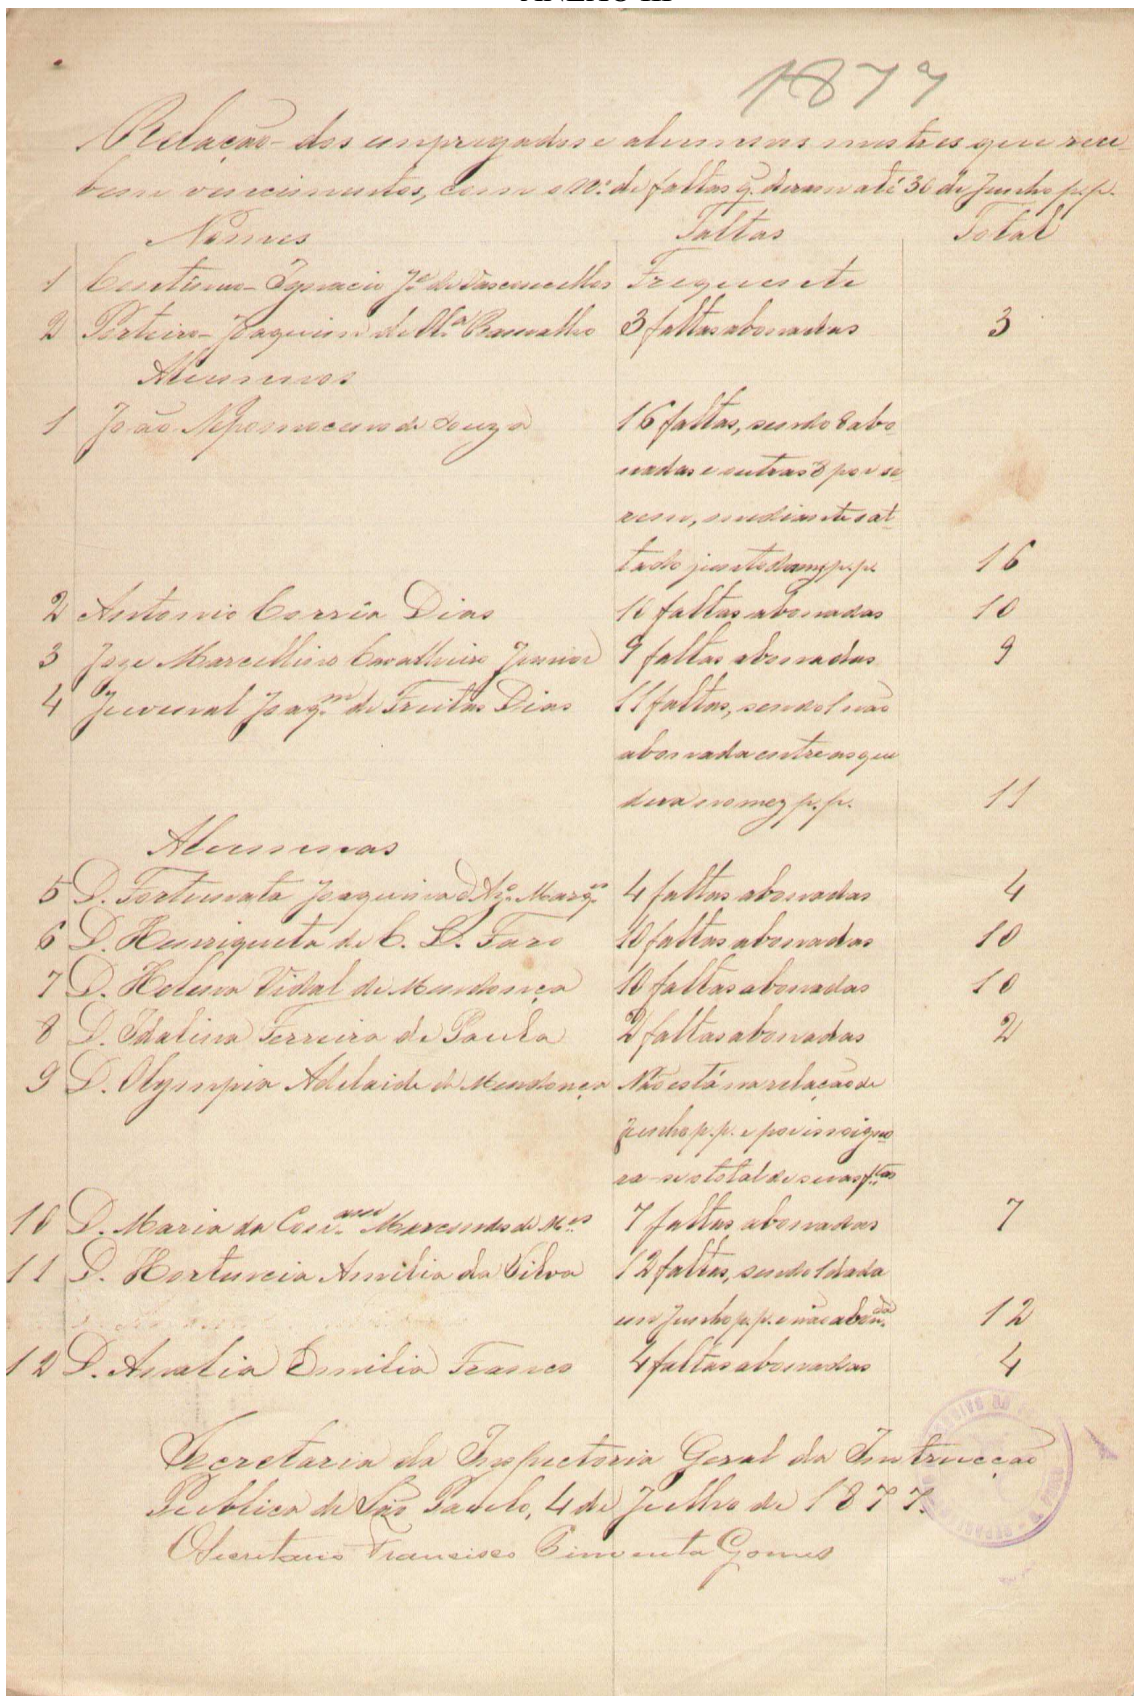 ANEXO III
1877
Relação dos empregados e alumnos mestres que rece-
bem vencimentos, com o nº. de faltas q. deram até 30 de Junho p.p.
Nomes Faltas Total
1 Contínuo - Ignacio Jé de Vasconcellos Frequente
2 Porteiro - Joaquim de Olª Carvalho 3 faltas abonadas 3
Alumnos
1 João Nepomoceno de Souza 16 faltas, sendo 8 abo
nadas e outras 8 por se
rem, mediante
p.p. 16
2 Antonio Corrêa Dias 10 faltas abonadas 10
3 Joze Marcellino Cavalheiro Junior 9 faltas abonadas 9
4 Juvenal Joaqm de Freitas Dias 11 faltas, sendo 1 não
abonada entre as que
dera no mez p.p. 11
Alumnas
5 D. Fortunata Joaquina 4 faltas abonadas 4
6 D. Henriqueta de C. L. Faro 10 faltas abonadas 10
7 D. Helena Vidal de Mendonça 10 faltas abonadas 10
8 D. Idalina Ferreira de Paula 2 faltas abonadas 2
9 D. Olympia Adelaide de Mendonça Não está na relação de
Junho p.p. e por isso igno
ra-se o total de suas ftas
10 D. Maria da 7 faltas abonadas 7
11 D. Hortencia Amilia da Silva 12 faltas, sendo 1 dada
em Junho p.p. e não abonda 12
12 D. Amalia Emilia Franco 4 faltas abonadas 4
Secretaria da Inspectoria Geral da Instrucção
Publica de São Paulo, 4 de Julho de 1877.
O Secretario Francisco Pimenta Gomes